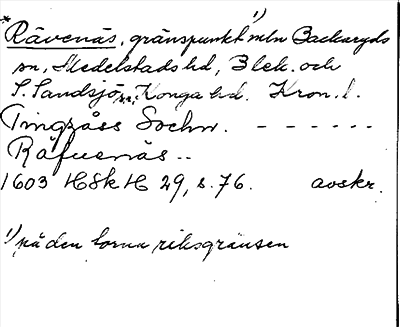 1)
*Rävenäs, gränspunkt mln Backaryds
sn, Medelstads hd, Blek. och
S. Sandsjö sn, Konga hd. Kron. l.
Tingzåss Sochn. - - - - - -
Räfuenäs --
1603 HSkH 29, s. 76. avskr.
1) på den forna riksgränsen